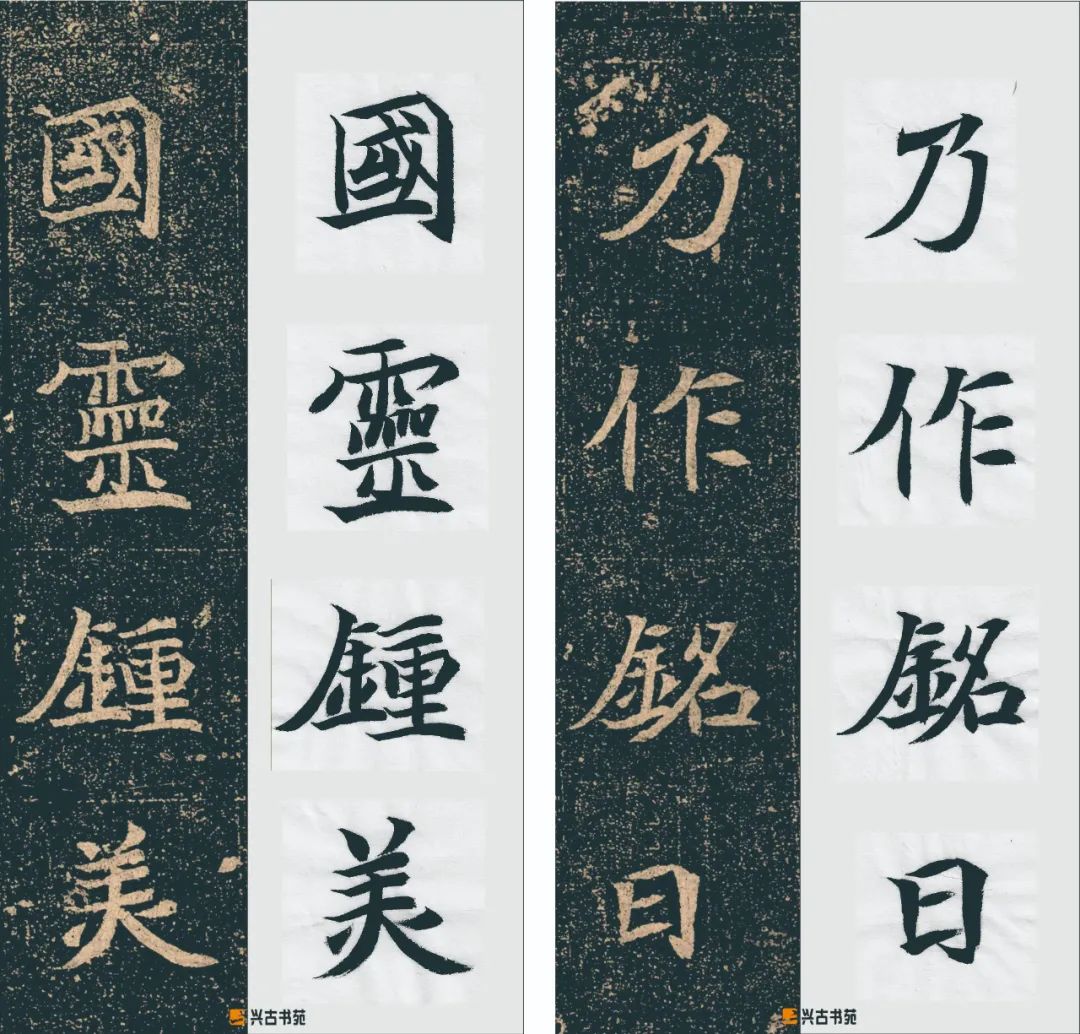 國靈鍾美
國靈鍾美
兴古书苑
乃作銘曰
乃作銘曰
兴古书苑